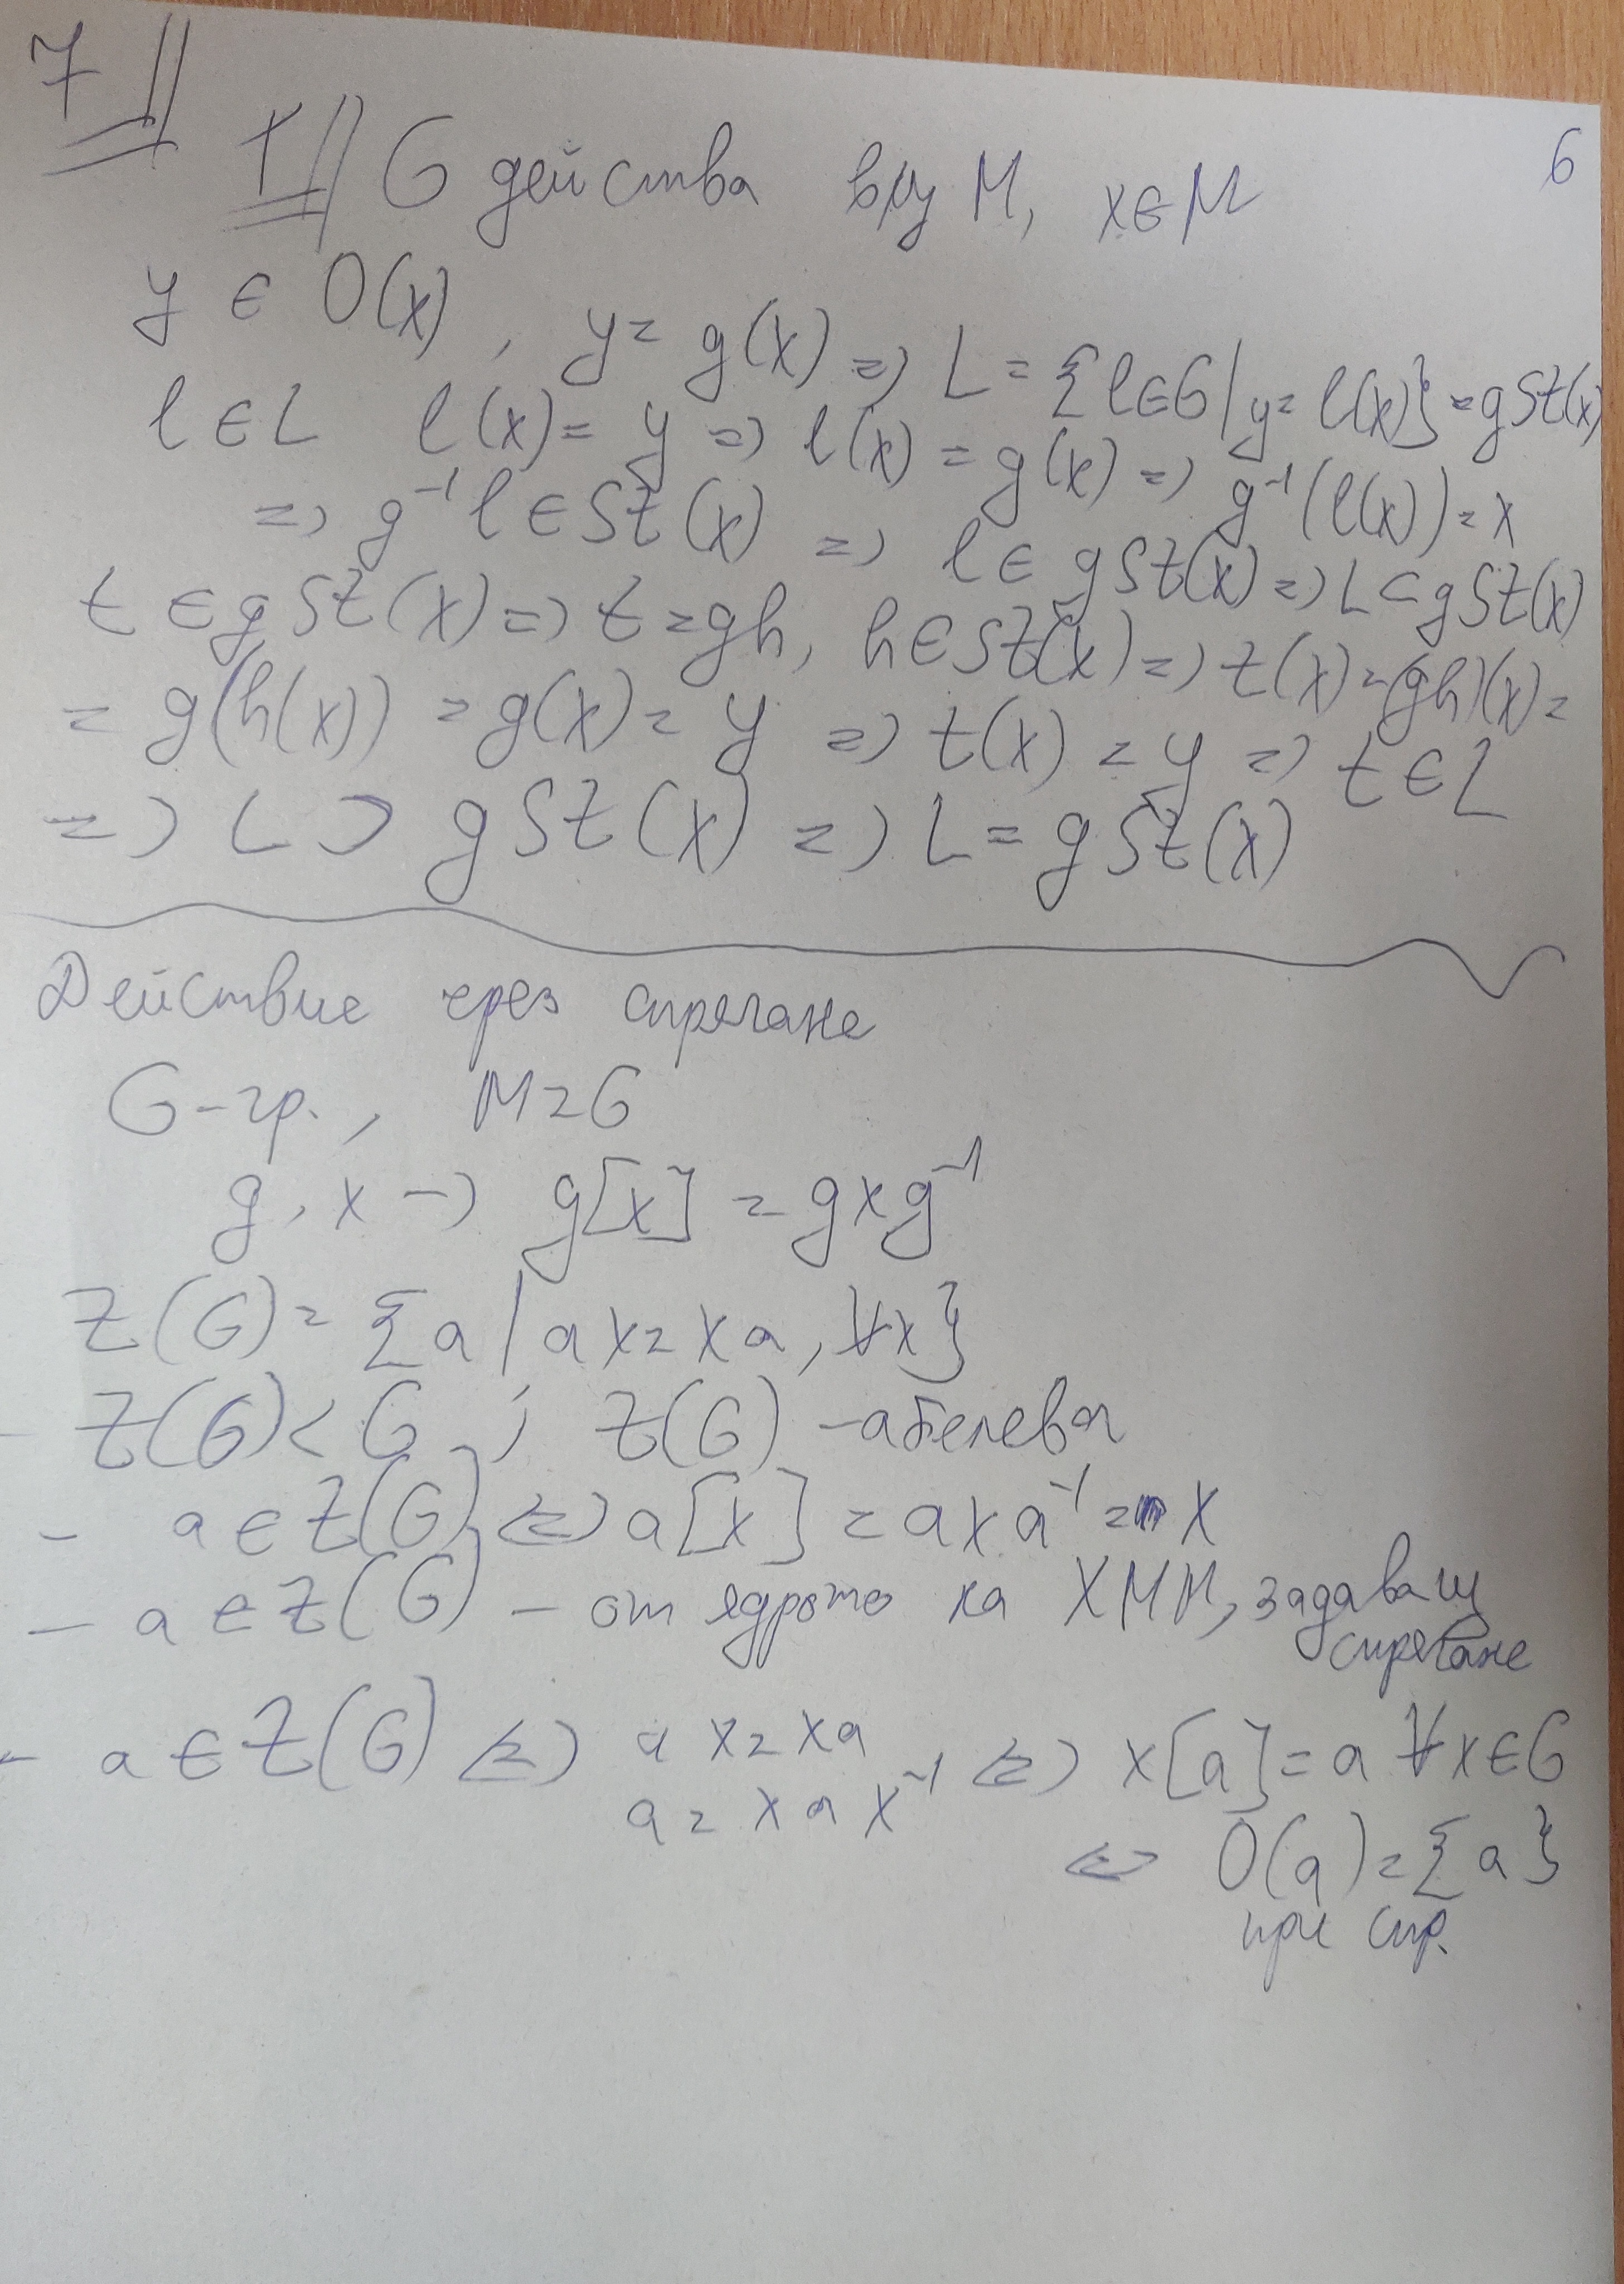 7
6
T G действа в/у M, x∈M
y ∈ O(x), y = g(x) => L = {l∈G | y = l(x)} = g St(x)
l ∈ L l(x) = y => l(x) = g(x) => g⁻¹(l(x)) = x
=> g⁻¹l ∈ St(x) => l ∈ g St(x) => L ⊂ g St(x)
t ∈ g St(x) => t = gh, h ∈ St(x) => t(x) = (gh)(x) =
= g(h(x)) = g(x) = y => t(x) = y => t ∈ L
=> L ⊃ g St(x) => L = g St(x)
Действие чрез спрягане
G - гр., M = G
g, x -> g[x] = gxg⁻¹
Z(G) = {a | ax = xa, ∀x}
- Z(G) < G ; Z(G) - абелева
- a ∈ Z(G) <=> a[x] = axa⁻¹ = x
- a ∈ Z(G) - от ядрото на ХММ, задаващ
спрягане
- a ∈ Z(G) <=> ax = xa <=> x[a] = a ∀x∈G
a = xax⁻¹
<=> O(a) = {a}
при спр.